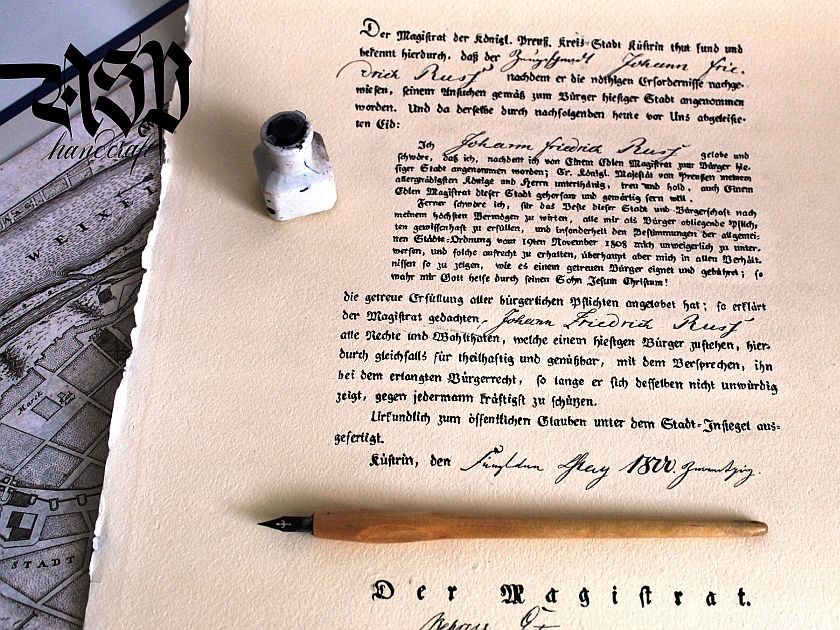 ASP
handcraft
WEINE
March
STADT
Der Magistrat der Königl. Preuß. Kreis-Stadt Küstrin thut kund und
bekennt hierdurch, daß der Johann Frie-
drich Russ nachdem er die nöthigen Erfordernisse nachge-
wiesen, seinem Ansuchen gemäß zum Bürger hiesiger Stadt angenommen
worden. Und da derselbe durch nachfolgenden heute vor Uns abgeleiste-
ten Eid:
Ich Johann Friedrich Russ gelobe und
schwöre, daß ich, nachdem ich von Einem Edlen Magistrat zum Bürger hie-
siger Stadt angenommen worden; Sr. Königl. Majestät von Preußen meinem
allergnädigsten Könige und Herrn unterthänig, treu und hold, auch Einem
Edlen Magistrat dieser Stadt gehorsam und gewärtig sern will.
Ferner schwöre ich, für das Beste dieser Stadt und Bürgerschaft nach
meinem höchsten Vermögen zu wirken, alle mir als Bürger obliegende Pflich-
ten gewissenhaft zu erfüllen, und insonderheit den Bestimmungen der allgemei-
nen Städte-Ordnung vom 19ten November 1808 mich unweigerlich zu unter-
werfen, und solche aufrecht zu erhalten, überhaupt aber mich in allen Verhält-
nissen so zu zeigen, wie es einem getreuen Bürger eignet und gebührt; so
wahr mir Gott helfe durch seinen Sohn Jesum Christum!
die getreue Erfüllung aller bürgerlichen Pflichten angelobet hat; so erklärt
der Magistrat gedachten Johann Friedrich Russ
alle Rechte und Wohlthaten, welche einem hiesigen Bürger zustehen, hier-
durch gleichfalls für theilhaftig und genüßbar, mit dem Versprechen, ihn
bei dem erlangten Bürgerrecht, so lange er sich desselben nicht unwürdig
zeigt, gegen jedermann kräftigst zu schützen.
Urkundlich zum öffentlichen Glauben unter dem Stadt-Insiegel aus-
gefertigt.
Küstrin, den May 1800
Der Magistrat.